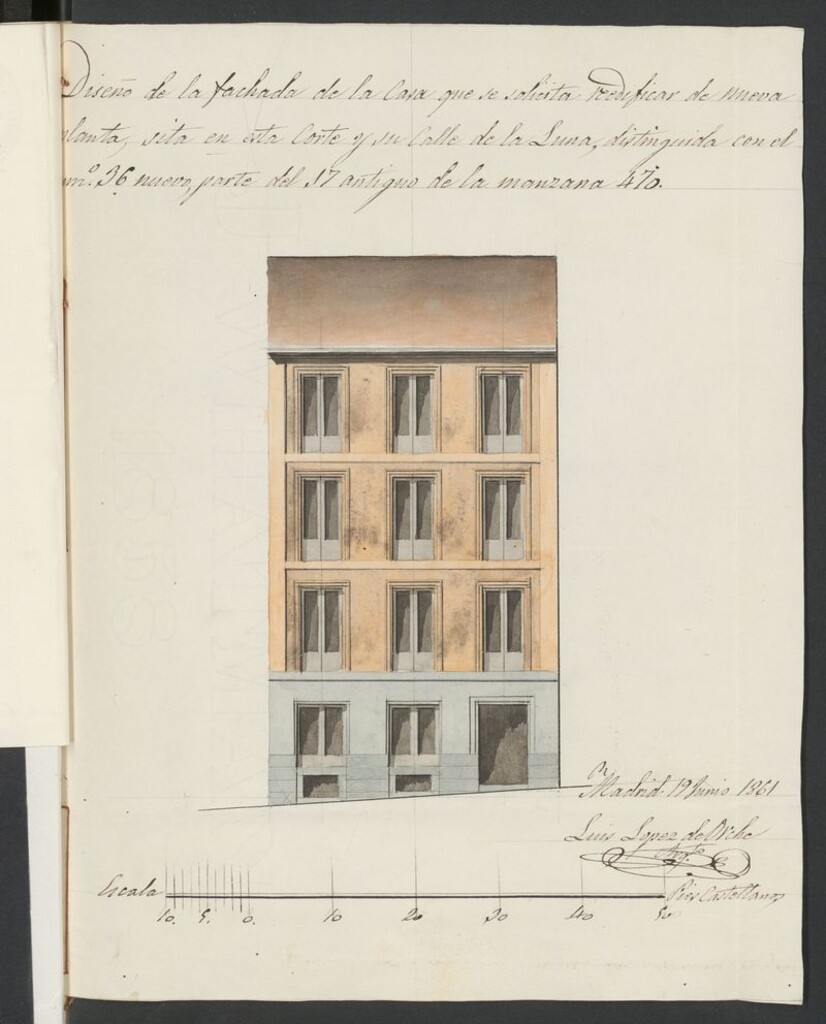 Diseño de la fachada de la Casa que se solicita reedificar de nueva
planta, sita en esta Corte y su Calle de la Luna, distinguida con el
nº. 36 nuevo, parte del 17 antiguo de la manzana 470.
Madrid 19 Junio 1861
Luis Lopez de
Escala
Pies Castellanos
10. 5. 0. 10 20 30 40 50